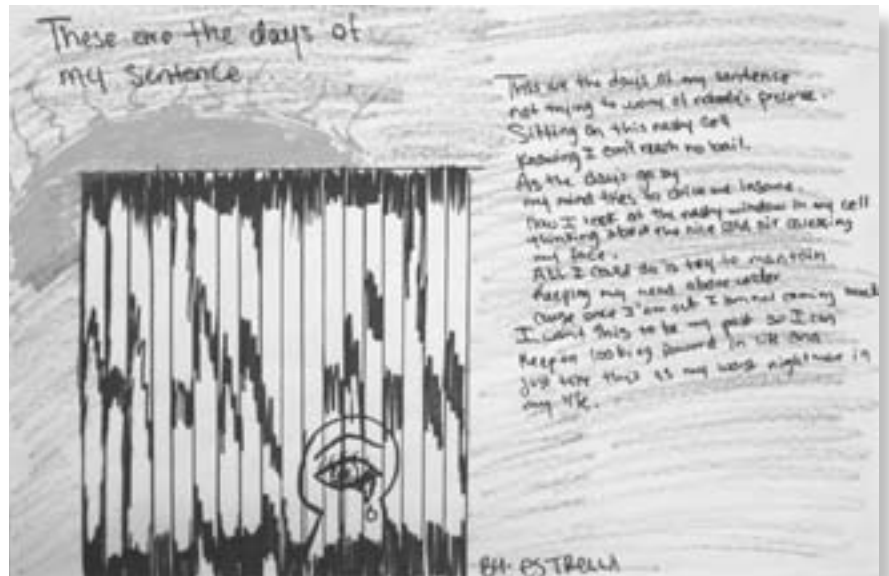 These are the days of
my Sentence
This are the days of my sentence
not trying to worry of nobody's
Sitting on this nasty cell
knowing I can't reach no bail.
As the days go by
my mind tries to drive me insane.
now I look at the nasty window in my cell
thinking about the nice cold air
my face.
All I could do is try to maintain
keeping my head above water
cause once I'am out I am not coming back
I want this to be my past so I can
keep on looking foward in life and
just take this as my worst nightmare in
my life.
BY: ESTRELLA